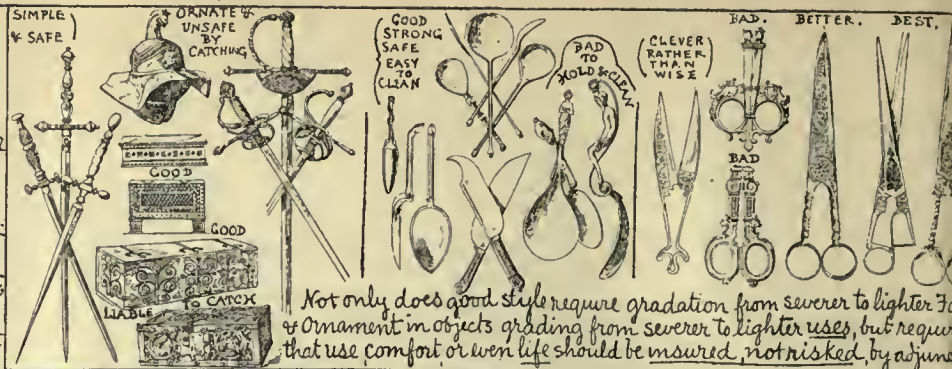 SIMPLE
& SAFE
ORNATE &
UNSAFE
BY
CATCHING
GOOD
GOOD
LIABLE TO CATCH
GOOD
STRONG
SAFE
EASY
TO
CLEAN
BAD
TO
HOLD & CLEAN
CLEVER
RATHER
THAN
WISE
BAD.
BAD
BETTER.
BEST.
Not only does good style require gradation from severer to lighter
& Ornament in objects grading from severer to lighter uses, but
that use comfort, or even life should be insured, not risked, by